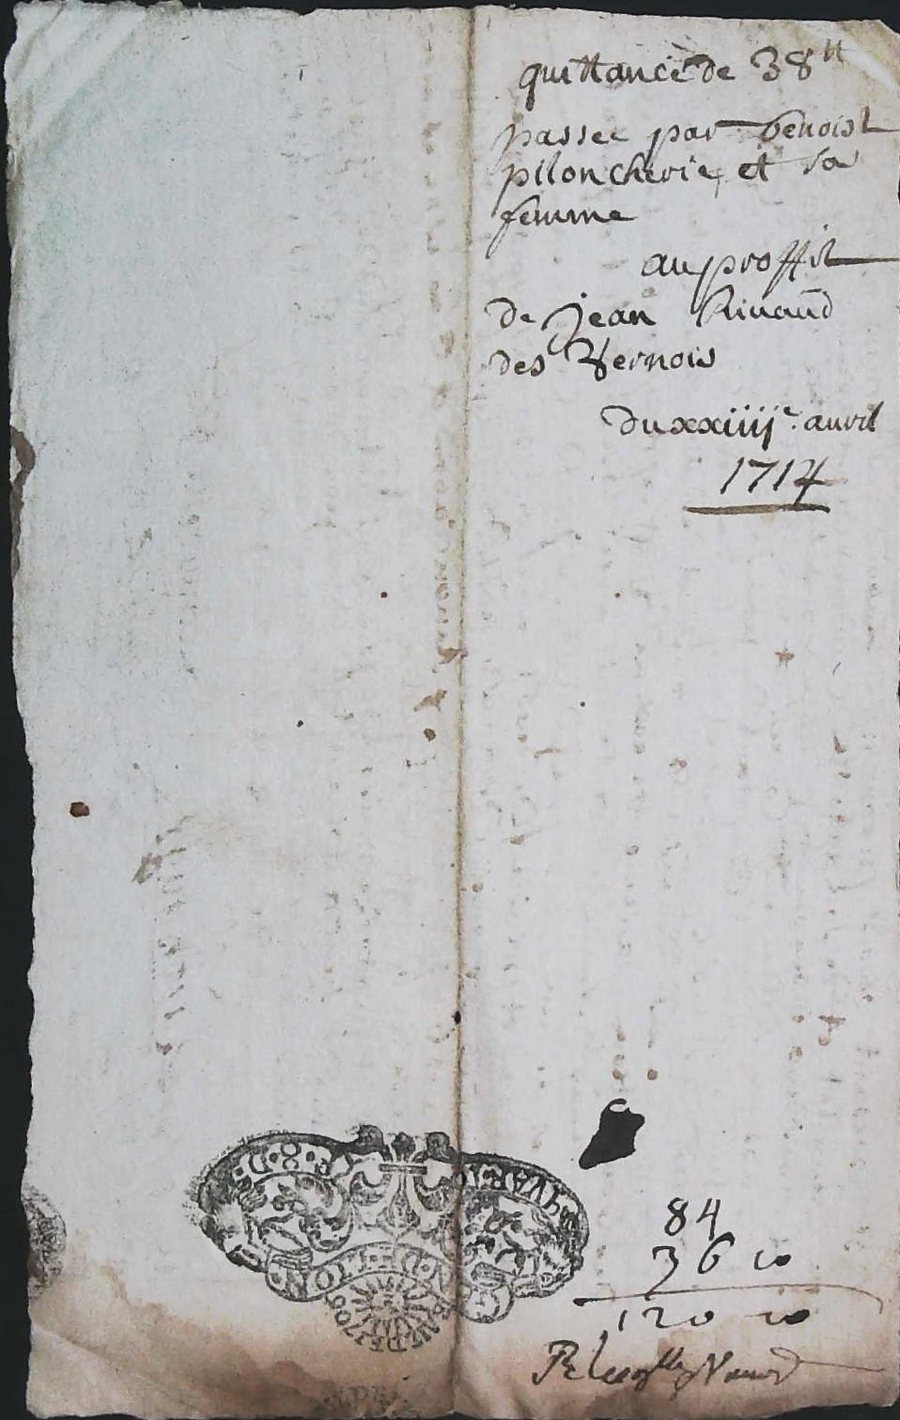 quittance de 38 ₶
passee par benoist
piloncherie et sa
femme
au proffit
de jean Rinaud
des Vernois
du xxiiij.e auril
1714
GEN. DE LION
84
36 10
120 10